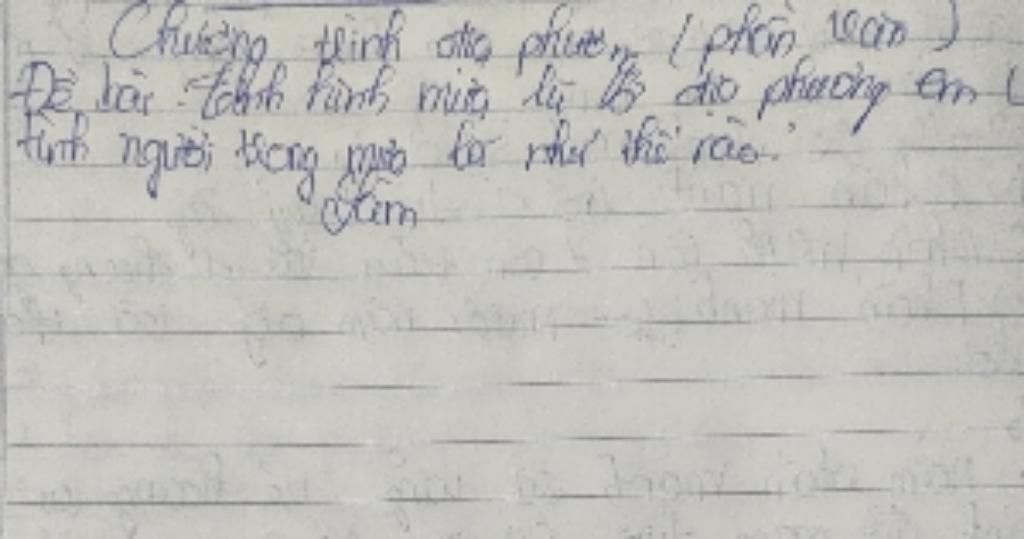 Chương trình địa phương (phần văn)
Đề bài: Tình hình mưa lũ ở địa phương em (
tình người trong mưa lũ như thế nào.
Làm